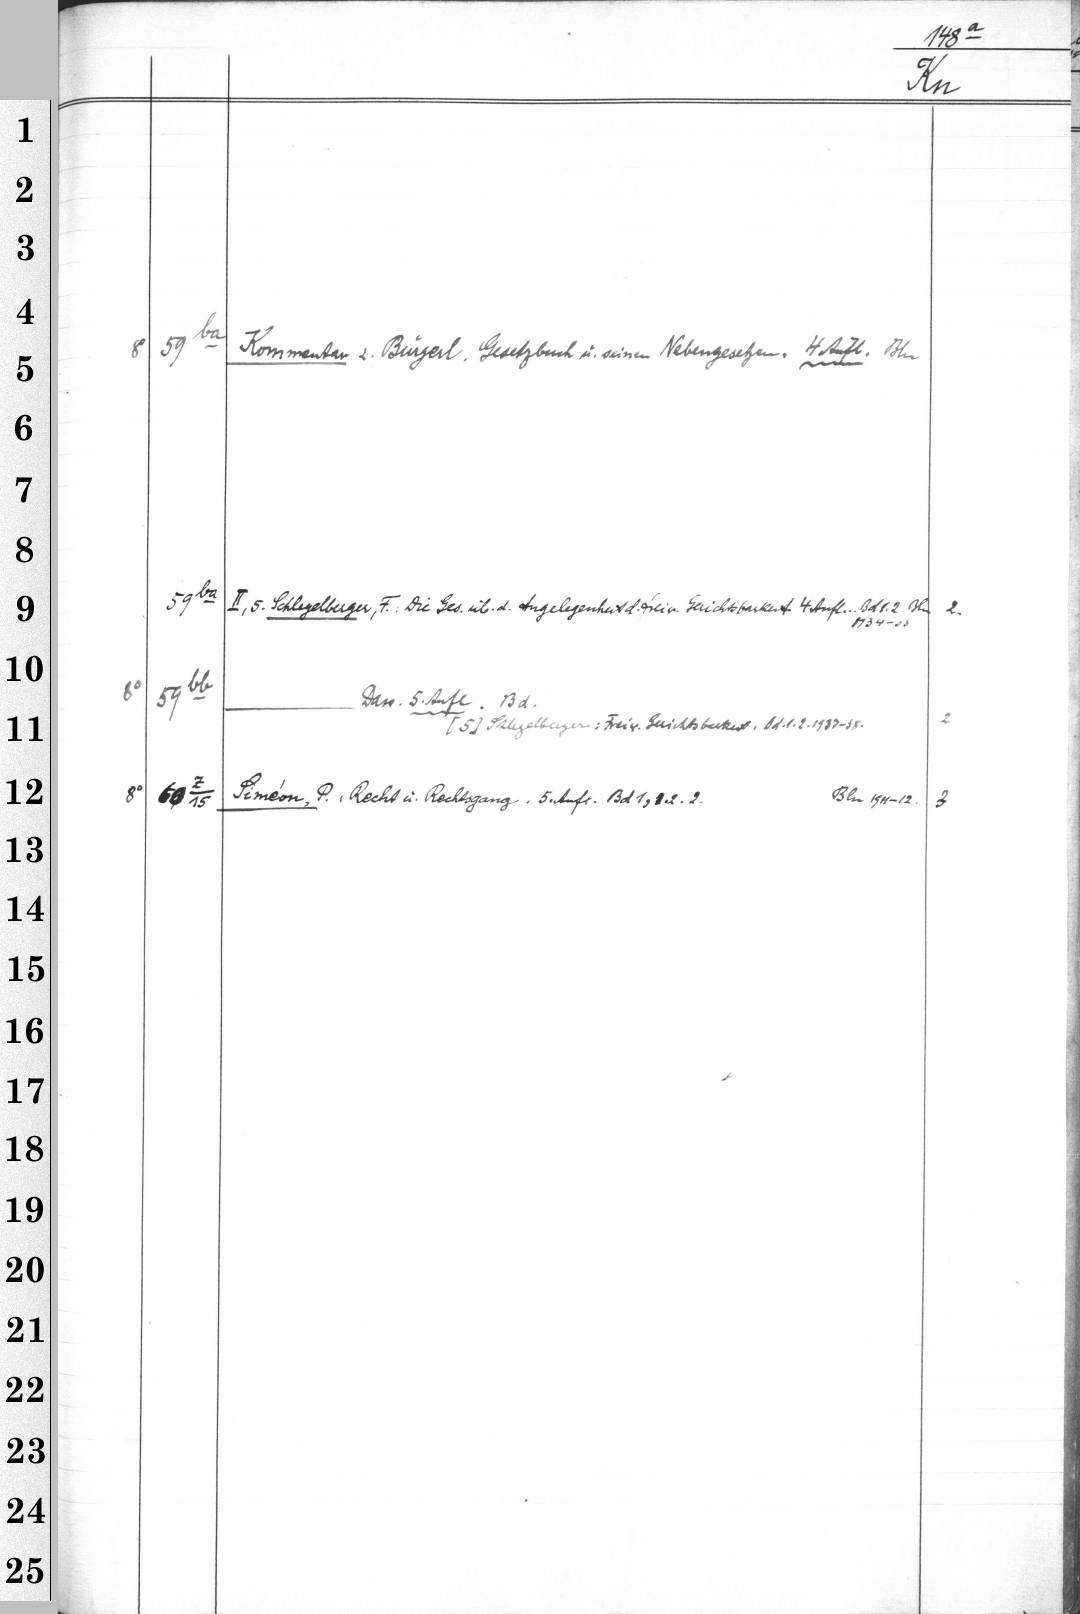 148 a
Kn
1
2
3
4
8 59 ba Kommentar z. Bürgerl. Gesetzbuch u. seinen Nebengesetzen. 4. Aufl. Bln
5
6
7
8
59 ba II, 5. Schlegelberger, F.: Die Ges. üb. d. Angelegenheit d. freiw. Gerichtsbarkeit 4 Aufl.. Bd 1.2 Bln 2.
9
10
8° 59 bb Dass. 5. Aufl. Bd.
11
[5] Schlegelberger: Freiw. Gerichtsbarkeit. Bd. 1.2. 1937-38. 2
12
8° 60 Z/15 Siméon, P.: Recht u. Rechtsgang. 5. Aufl. Bd 1, 1.2. 2. Bln 1911-12. 3
13
14
15
16
17
18
19
20
21
22
23
24
25